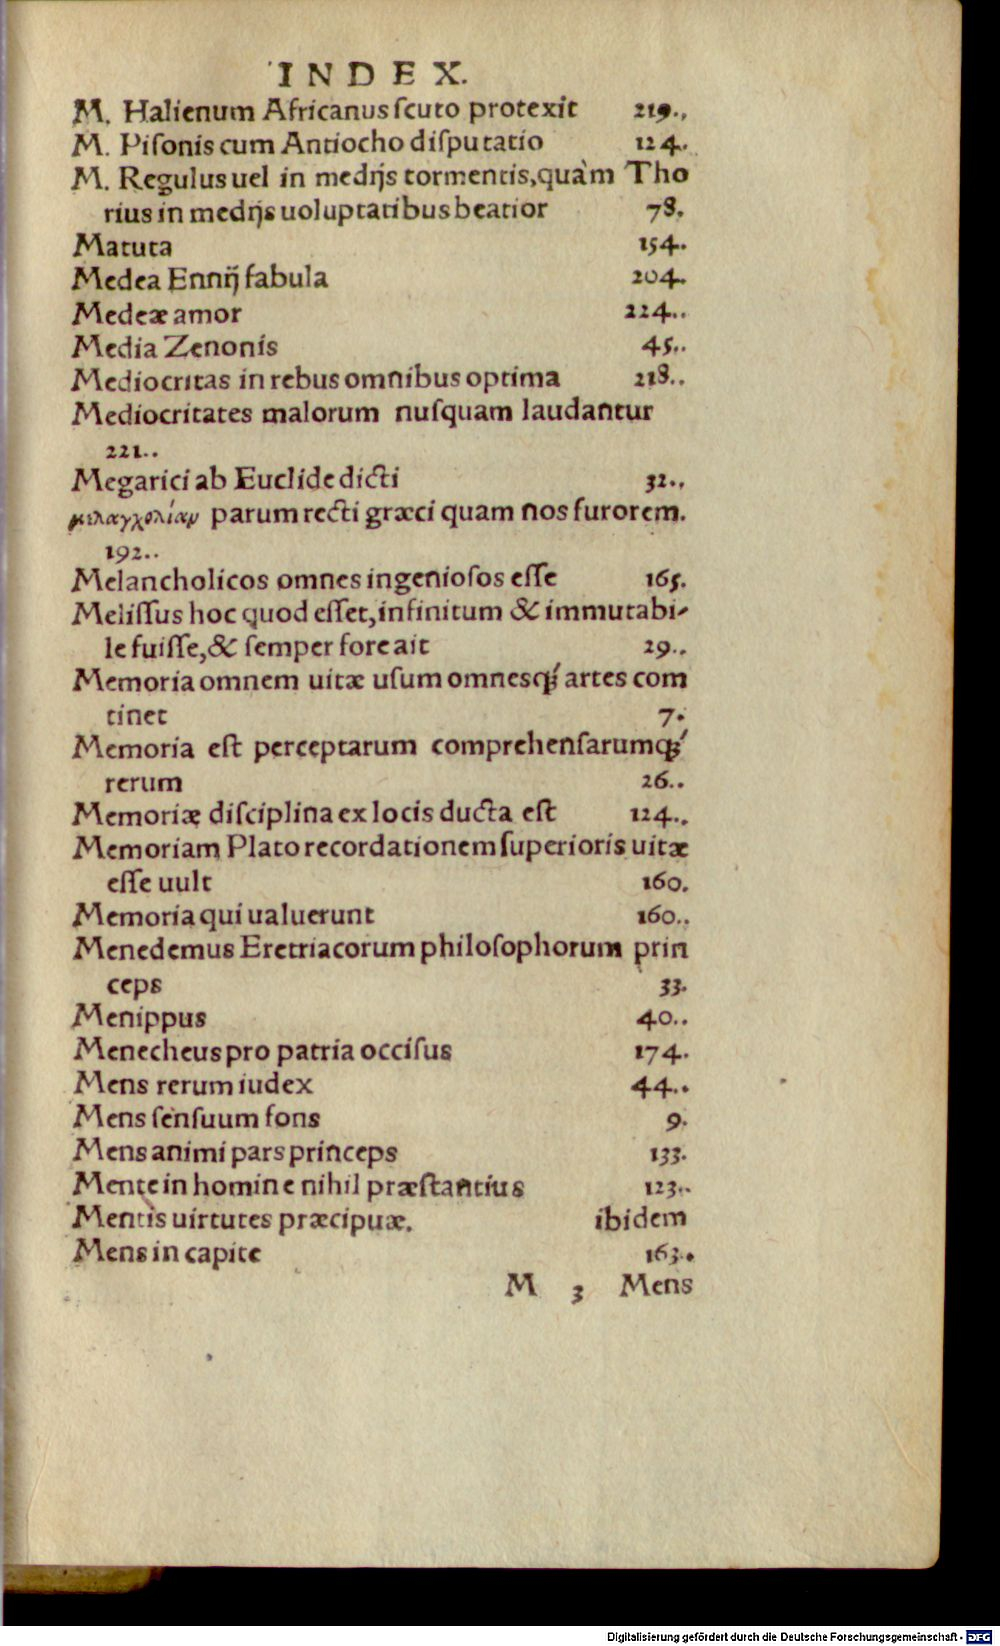 INDEX.
M. Halienum Africanus ſcuto protexit 219..
M. Piſonis cum Antiocho diſputatio 124.
M. Regulus uel in medijs tormentis, quàm Tho
rius in medijs uoluptatibus beatior 78.
Matuta 154.
Medea Ennij fabula 204.
Medeæ amor 224..
Media Zenonis 45..
Mediocritas in rebus omnibus optima 218..
Mediocritates malorum nuſquam laudantur
221..
Megarici ab Euclide dicti 32..
μελαγχολίαν parum recti græci quam nos furorem.
192..
Melancholicos omnes ingenioſos eſſe 165.
Meliſſus hoc quod eſſet, infinitum & immutabi-
le fuiſſe, & ſemper fore ait 29..
Memoria omnem uitæ uſum omnesq́; artes com
tinet 7.
Memoria eſt perceptarum comprehenſarumq́;
rerum 26..
Memoriæ diſciplina ex locis ducta eſt 124..
Memoriam Plato recordationem ſuperioris uitæ
eſſe uult 160.
Memoria qui ualuerunt 160..
Menedemus Eretriacorum philoſophorum prin
ceps 33.
Menippus 40..
Menecheus pro patria occiſus 174.
Mens rerum iudex 44..
Mens ſenſuum fons 9.
Mens animi pars princeps 133.
Mente in homine nihil præſtantius 123..
Mentis uirtutes præcipuæ. ibidem
Mens in capite 163..
M 3 Mens
Digitalisierung gefördert durch die Deutsche Forschungsgemeinschaft - DFG